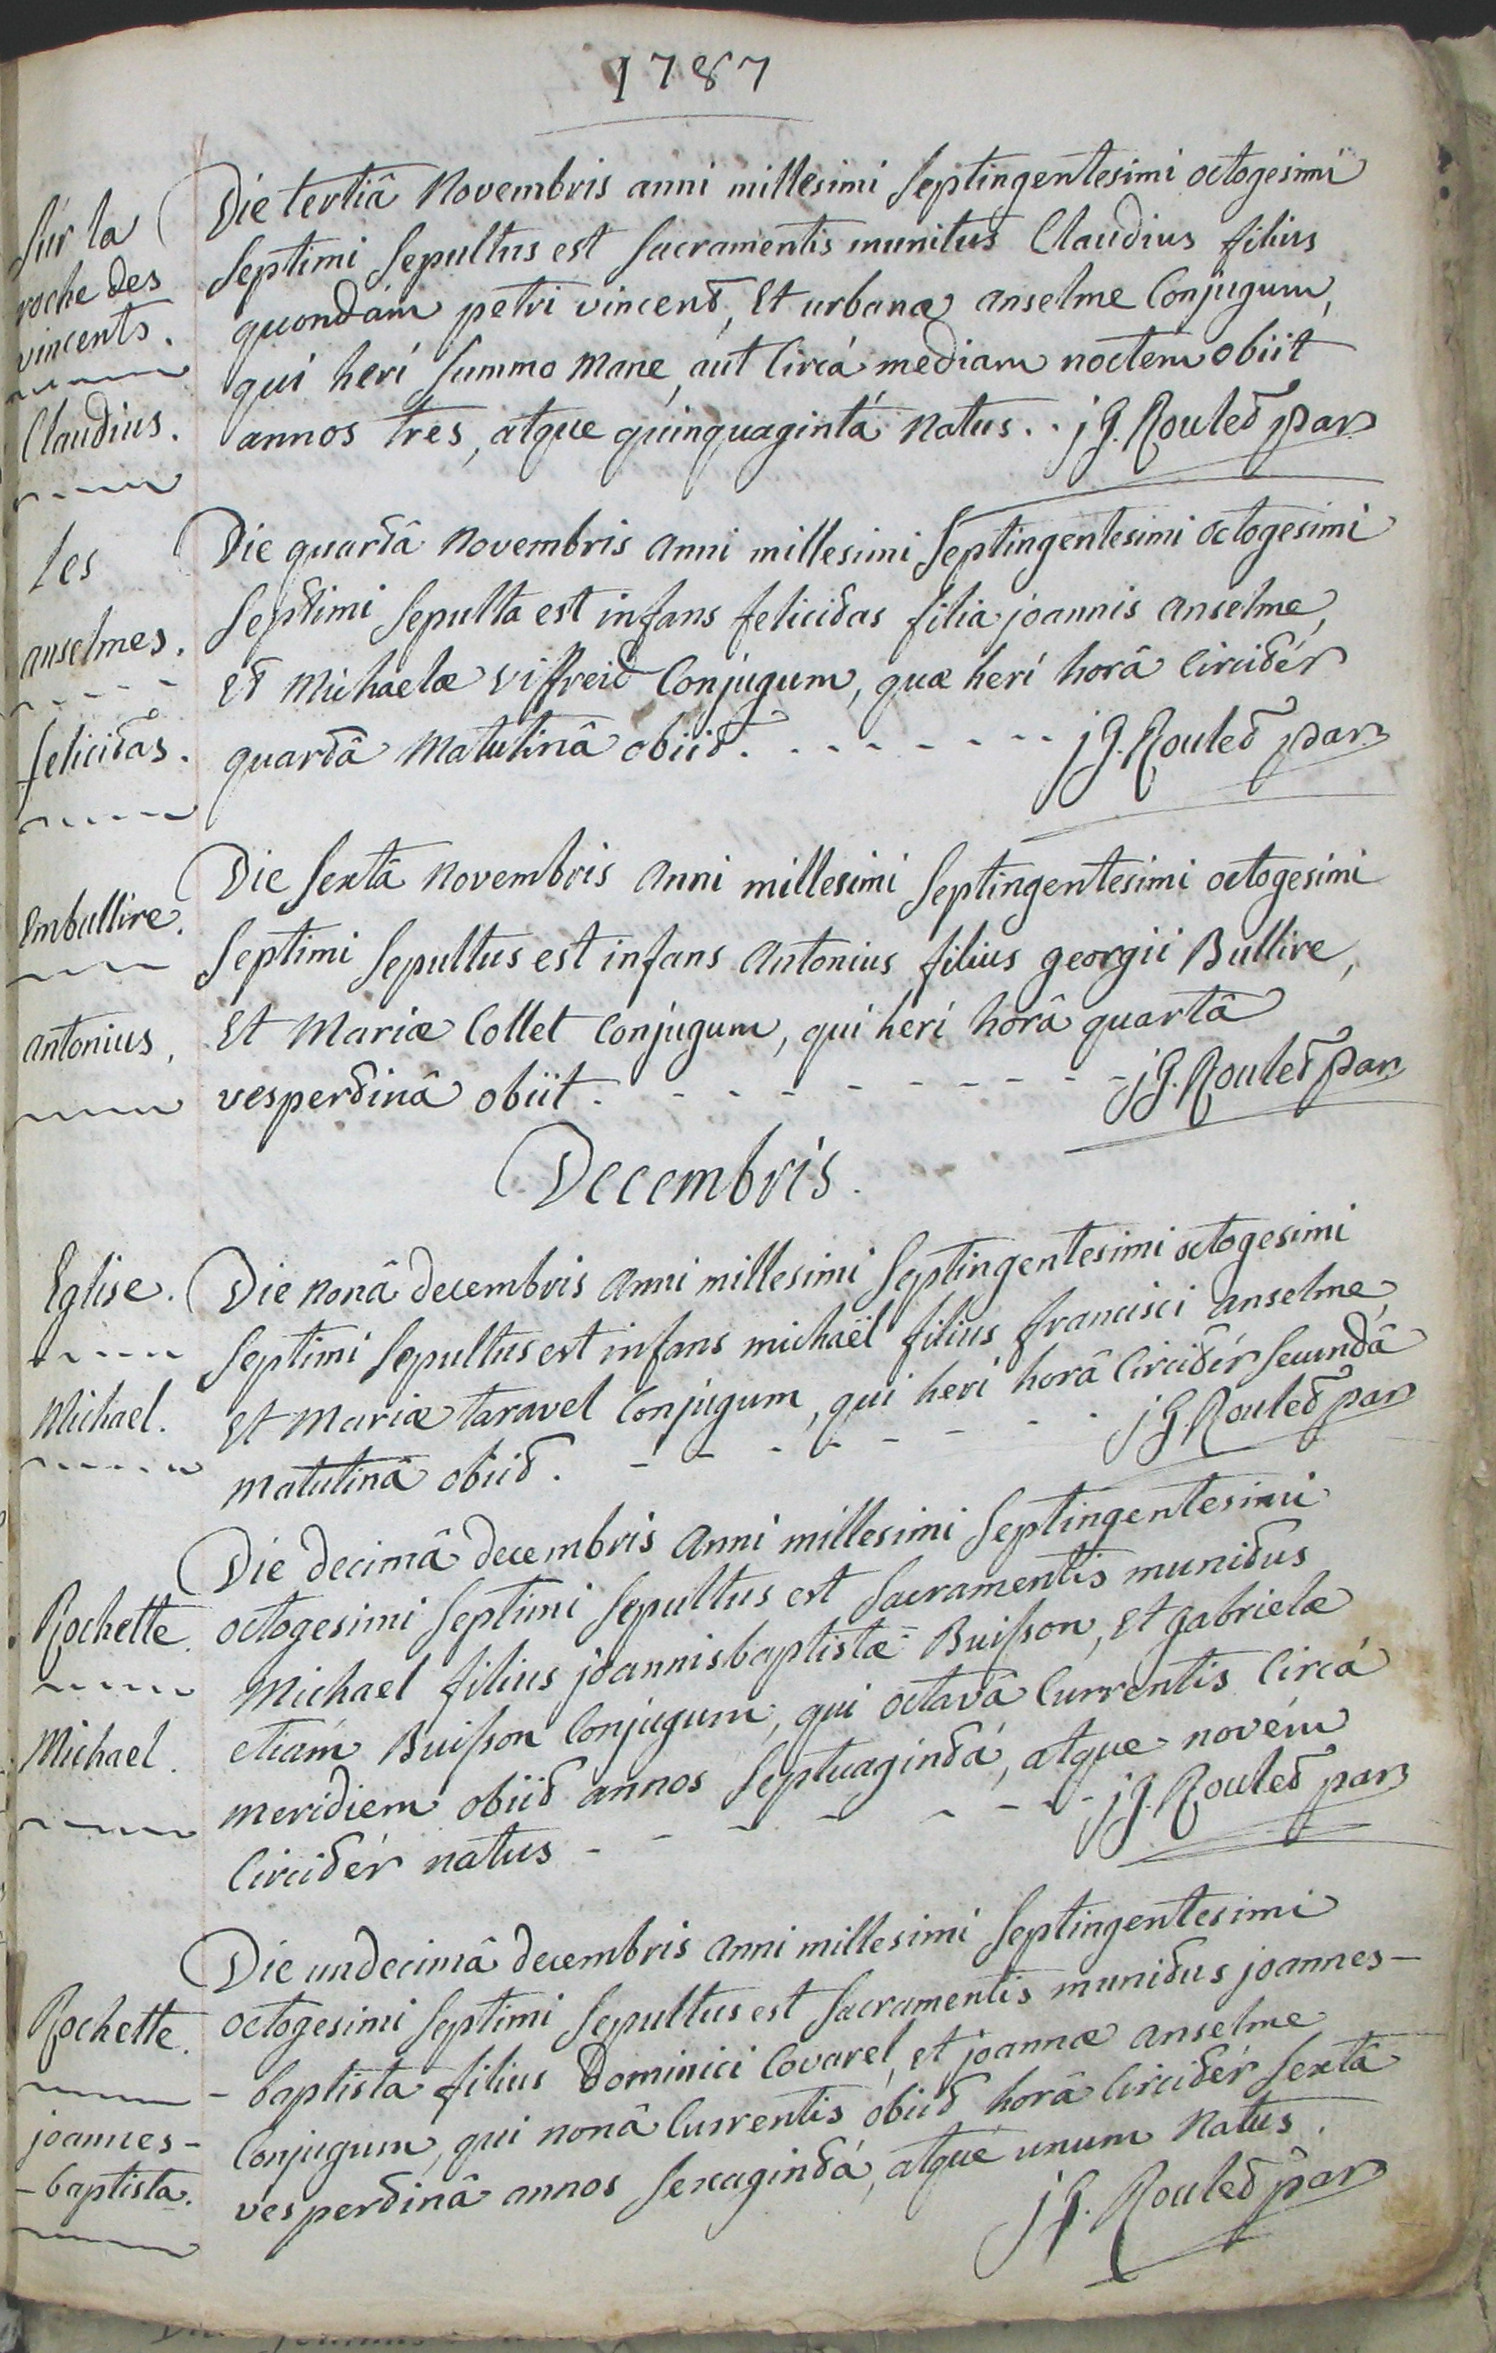 1787
Sur la
roche des
vincents.
Claudius.
Die tertiâ Novembris anni millesimi septingentesimi octogesimi
septimi sepultus est sacramentis munitus Claudius filius
quondám petri vincent, Et urbanæ anselme Conjugum,
qui heri summo mane, aut Circá mediam noctem obiit
annos tres, atque quinquagintá natus. . jG. Roulet par
Les
anselmes.
felicitas.
Die quartâ Novembris anni millesimi septingentesimi octogesimi
septimi sepulta est infans felicitas filia joannis anselme,
Et Michaelæ Viffreid Conjugum, quæ heri horâ Circitér
quartâ Matutinâ obiit. - - - - - - - jG. Roulet par
Embullire.
antonius.
Die sextâ novembris anni millesimi septingentesimi octogesimi
septimi sepultus est infans antonius filius georgii Bullire,
Et Mariæ Collet Conjugum, qui heri horâ quartâ
vespertinâ obiit. - - - - - - - - - jG. Roulet par
Decembris.
Eglise.
Michael.
Die nonâ decembris anni millesimi septingentesimi octogesimi
septimi sepultus est infans michaël filius francisci anselme,
Et Mariæ taravel Conjugum, qui heri horâ Circitér secundâ
matutinâ obiit. - - - - - - - - jG. Roulet par
Rochette.
Michael.
Die decimâ decembris anni millesimi septingentesimi
octogesimi septimi sepultus est sacramentis munitus
Michael filius joannisbaptistæ Buisson, Et gabrielæ
etiám Buisson Conjugum, qui octavâ Currentis Circá
meridiem obiit annos septuagintá, atque novém
Circitér natus - - - - - - - - jG. Roulet par
Rochette.
joannes-
-baptista.
Die undecimâ decembris anni millesimi septingentesimi
octogesimi septimi sepultus est sacramentis munitus joannes-
-baptista filius Dominici Covarel, et joannæ anselme
Conjugum, qui nonâ Currentis obiit horâ Circitér sextâ
vespertinâ annos sexagintá, atque unum natus.
jG. Roulet par